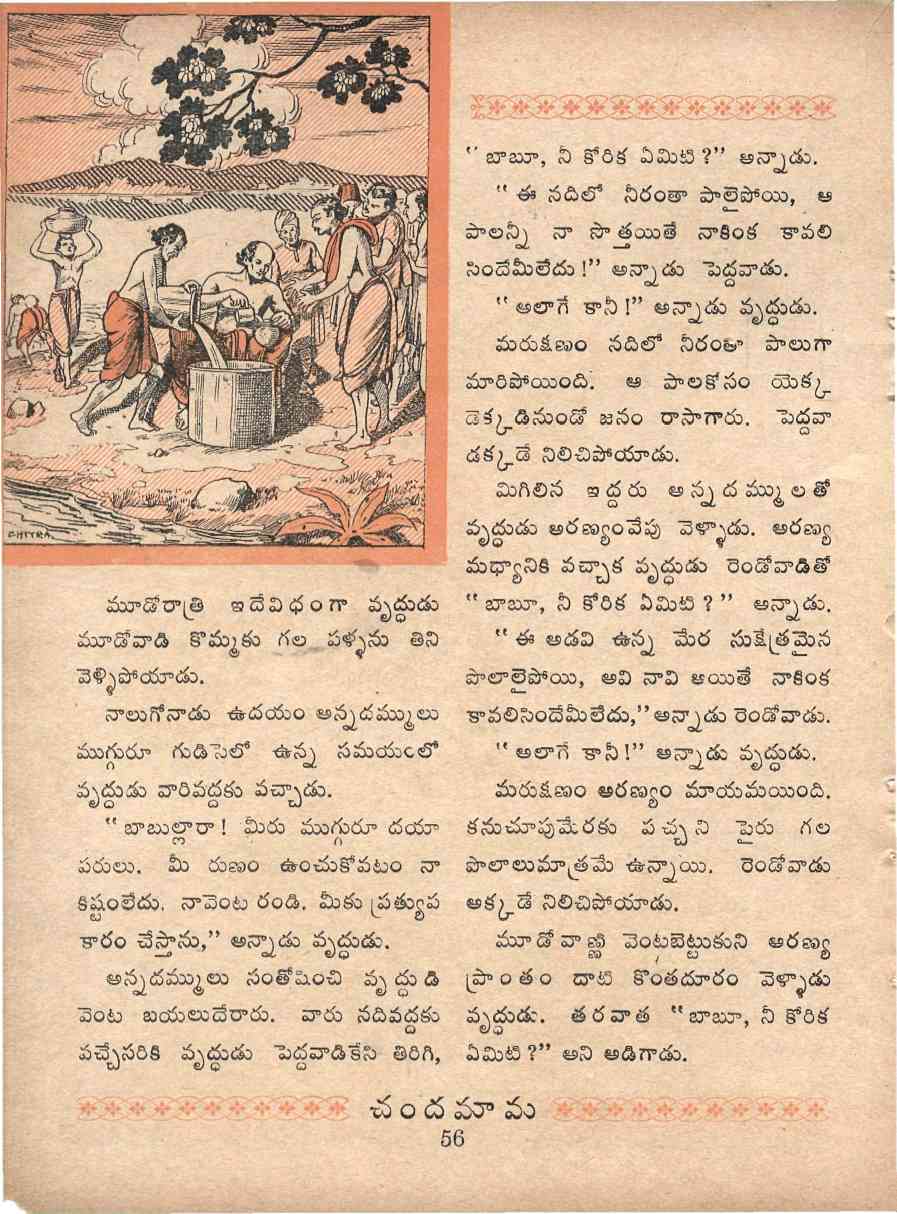 CHITRA
మూడోరాత్రి ఇదేవిధంగా వృద్ధుడు
మూడోవాడి కొమ్మకు గల పళ్ళను తిని
వెళ్ళిపోయాడు.
నాలుగోనాడు ఉదయం అన్నదమ్ములు
ముగ్గురూ గుడిసెలో ఉన్న సమయంలో
వృద్ధుడు వారివద్దకు వచ్చాడు.
“బాబుల్లారా! మీరు ముగ్గురూ దయా
పరులు. మీ రుణం ఉంచుకోవటం నా
కిష్టంలేదు. నావెంట రండి. మీకు ప్రత్యుప
కారం చేస్తాను,” అన్నాడు వృద్ధుడు.
అన్నదమ్ములు సంతోషించి వృద్ధుడి
వెంట బయలుదేరారు. వారు నదివద్దకు
వచ్చేసరికి వృద్ధుడు పెద్దవాడికేసి తిరిగి,
“బాబూ, నీ కోరిక ఏమిటి?” అన్నాడు.
“ఈ నదిలో నీరంతా పాలైపోయి, ఆ
పాలన్నీ నా సొత్తయితే నాకింక కావలి
సిందేమీలేదు!” అన్నాడు పెద్దవాడు.
“అలాగే కానీ!” అన్నాడు వృద్ధుడు.
మరుక్షణం నదిలో నీరంతా పాలుగా
మారిపోయింది. ఆ పాలకోసం యెక్క
డెక్కడినుండో జనం రాసాగారు. పెద్దవా
డక్కడే నిలిచిపోయాడు.
మిగిలిన ఇద్దరు అన్నదమ్ములతో
వృద్ధుడు అరణ్యంవేపు వెళ్ళాడు. అరణ్య
మధ్యానికి వచ్చాక వృద్ధుడు రెండోవాడితో
“బాబూ, నీ కోరిక ఏమిటి?” అన్నాడు.
“ఈ అడవి ఉన్న మేర సుక్షేత్రమైన
పొలాలైపోయి, అవి నావి అయితే నాకింక
కావలిసిందేమీలేదు,” అన్నాడు రెండోవాడు.
“అలాగే కానీ!” అన్నాడు వృద్ధుడు.
మరుక్షణం అరణ్యం మాయమయింది.
కనుచూపుమేరకు పచ్చని పైరు గల
పొలాలుమాత్రమే ఉన్నాయి. రెండోవాడు
అక్కడే నిలిచిపోయాడు.
మూడోవాణ్ణి వెంటబెట్టుకుని అరణ్య
ప్రాంతం దాటి కొంతదూరం వెళ్ళాడు
వృద్ధుడు. తరవాత “బాబూ, నీ కోరిక
ఏమిటి?” అని అడిగాడు.
చందమామ
56